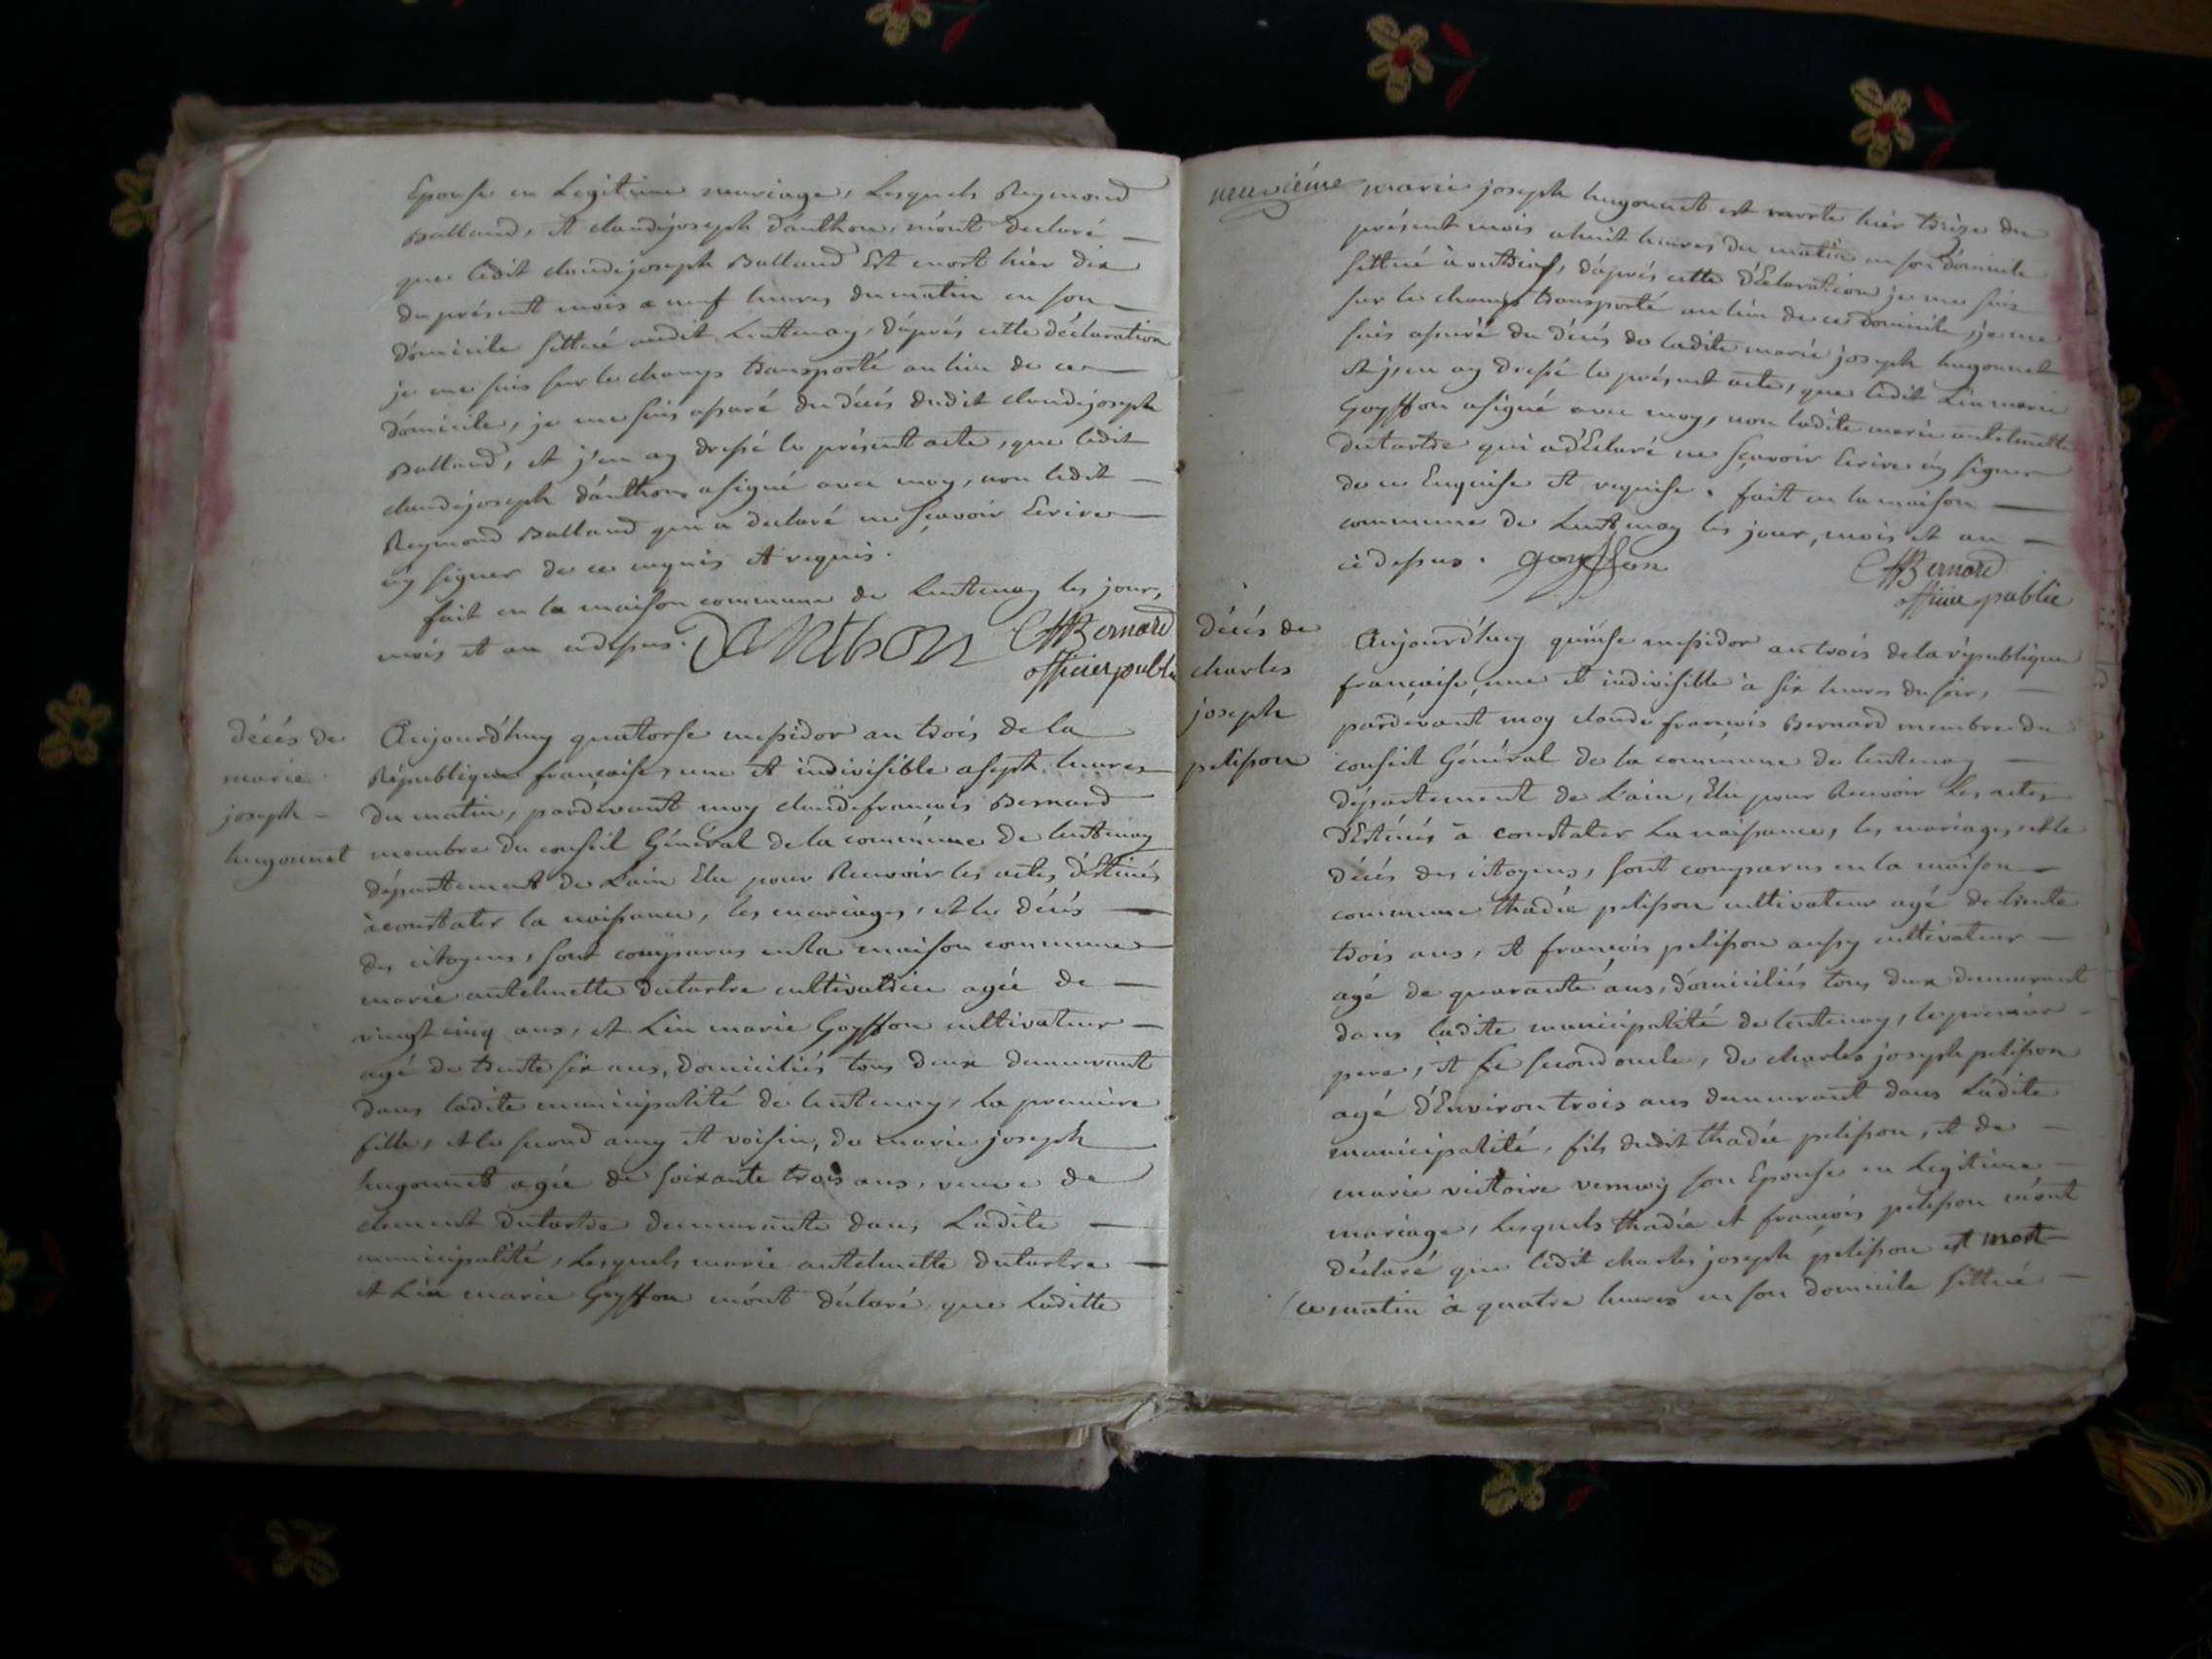 Epouse en Legitime mariage, Lesquels Reymond
Balland, et claudejoseph d'anthon, m'ont declaré —
que ledit claudejoseph Balland Est mort hier dix
du présent mois a neuf heures du matin en son —
domicile sittué audit Lentenay, d'aprés cette déclaration
je me suis sur le champs transporté au lieu de ce —
domicile, je me suis assuré du décés dudit claudejoseph
Balland, et j'en ay dressé le présent acte, que ledit
claudejoseph d'anthon a signé avec moy, non ledit —
Reymond Balland qui a declaré ne sçavoir Ecrire —
ny signer de ce enquis et requis.
fait en la maison commune de Lentenay les jour,
mois et an cidessus. Danthon CfBernard
officier public
décés de
marie
joseph —
hugonnet
Aujourd'huy quatorse messidor an trois de la —
République française, une et indivisible a sept heures
du matin, pardevant moy claudefrançois Bernard
membre du conseil Général de la commune de lentenay
département de L'ain Elu pour Recevoir les actes d'Estinés
a constater la naissance, les mariages, et le décés —
des citoyens, sont comparus en la maison commune
marie antelmette dutartre cultivatrice agée de —
vingt cinq ans, et Lin marie Goyffon cultivateur —
agé de trente six ans, domiciliés tous deux demeurant
dans ladite municipalité de lentenay, la premiere
fille, et le second amy et voisin, de marie joseph
hugonnet agée de soixante trois ans, veuve de
clement dutartre demeurante dans Ladite —
municipalité, Lesquels marie antelmette dutartre —
et Lin marie Goyffon m'ont déclaré que Laditte
neuvième
marie joseph hugonnet est morte hier treize du
présent mois a huit heures du matin en son domicile
sittué d'aprés cette d'Eclaration je me suis
sur le champs transporté au lieu de ce domicile, je me
suis assuré du décés de ladite marie joseph hugonnet
et j'en ay dressé le présent acte, que ledit Lin marie
Goyffon a signé avec moy, non ladite marie antelmette
dutartre qui a d'Eclaré ne sçavoir Ecrire ny signer
de ce Enquise et requise. fait en la maison —
commune de Lentenay les jour, mois et an —
cidessus. goyffon CfBernard
officier public
décés de
charles
joseph
pelisson
Aujourd'huy quinse messidor an trois de la république
française, une et indivisible à six heures du soir, —
pardevant moy claude françois Bernard membre du
conseil Général de la commune de lentenay —
département de L'ain, Elu pour Recevoir Les actes
d'Estinés à constater La naissance, les mariages, et le
décés des citoyens, sont comparus en la maison —
commune thadée pelisson cultivateur agé de trente
trois ans, et françois pelisson aussy cultivateur —
agé de quarante ans, domiciliés tous deux demeurant
dans ladite municipalité de lentenay, le premier —
pere, et Le second oncle, de charles joseph pelisson
agé d'Environ trois ans demeurant dans Ladite
municipalité, fils dudit thadée pelisson, et de —
marie victoire son Epouse en Legitime —
mariage, Lesquels thadée et françois pelisson m'ont
déclaré que ledit charles joseph pelisson est mort —
ce matin à quatre heures en son domicile sittué —